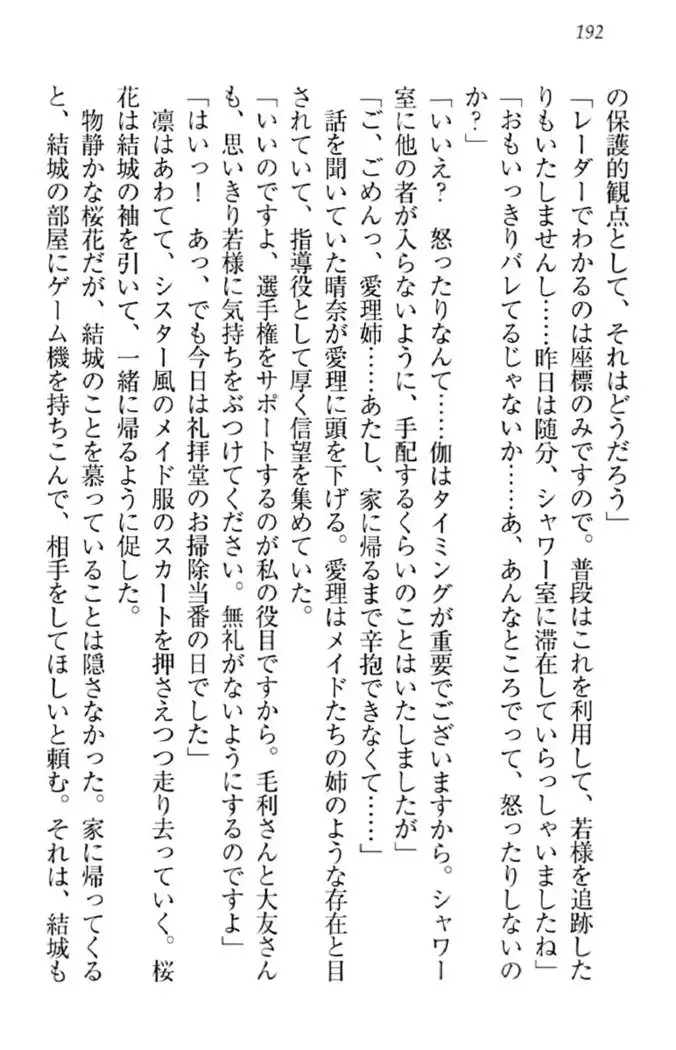 192
の保護的観点として、それはどうだろう」
「レーダーでわかるのは座標のみですので。普段はこれを利用して、若様を追跡した
りもいたしませんし……昨日は随分、シャワー室に滞在していらっしゃいましたね」
「おもいっきりバレてるじゃないか……あ、あんなところでって、怒ったりしないの
か？」
「いいえ？　怒ったりなんて……伽はタイミングが重要でございますから。シャワー
室に他の者が入らないように、手配するくらいのことはいたしましたが」
「ご、ごめんっ、愛理姉……あたし、家に帰るまで辛抱できなくて……」
話を聞いていた晴奈が愛理に頭を下げる。愛理はメイドたちの姉のような存在と目
されていて、指導役として厚く信望を集めていた。
「いいのですよ、選手権をサポートするのが私の役目ですから。毛利さんと大友さん
も、思いきり若様に気持ちをぶつけてください。無礼がないようにするのですよ」
「はいっ！　あっ、でも今日は礼拝堂のお掃除当番の日でした」
凛はあわてて、シスター風のメイド服のスカートを押さえつつ走り去っていく。桜
花は結城の袖を引いて、一緒に帰るように促した。
物静かな桜花だが、結城のことを慕っていることは隠さなかった。家に帰ってくる
と、結城の部屋にゲーム機を持ちこんで、相手をしてほしいと頼む。それは、結城も